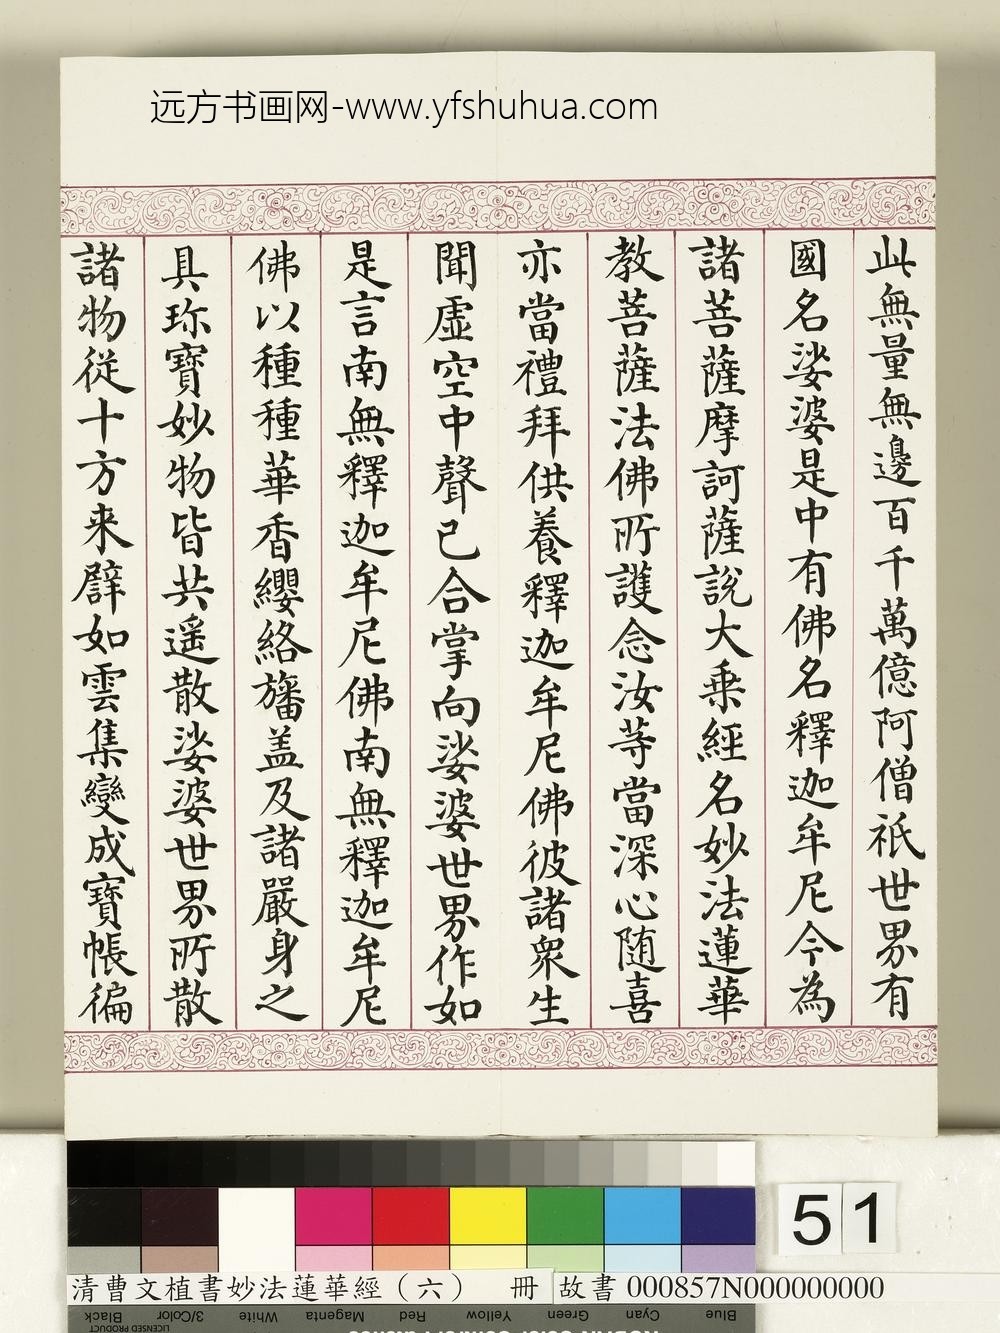 远方书画网-www.yfshuhua.com
此無量無邊百千萬億阿僧祇世界有
國名娑婆是中有佛名釋迦牟尼今為
諸菩薩摩訶薩說大乗經名妙法蓮華
教菩薩法佛所護念汝等當深心随喜
亦當禮拜供養釋迦牟尼佛彼諸衆生
聞虛空中聲已合掌向娑婆世界作如
是言南無釋迦牟尼佛南無釋迦牟尼
佛以種種華香纓絡旛盖及諸嚴身之
具珎寶妙物皆共遥散娑婆世界所散
諸物從十方来辟如雲集變成寶帳徧
51
清曹文植書妙法蓮華經（六） 冊
故書 000857N000000000
Blue Cyan Green Yellow Red Magenta White 3/Color Black
LICENSED PRODUCT